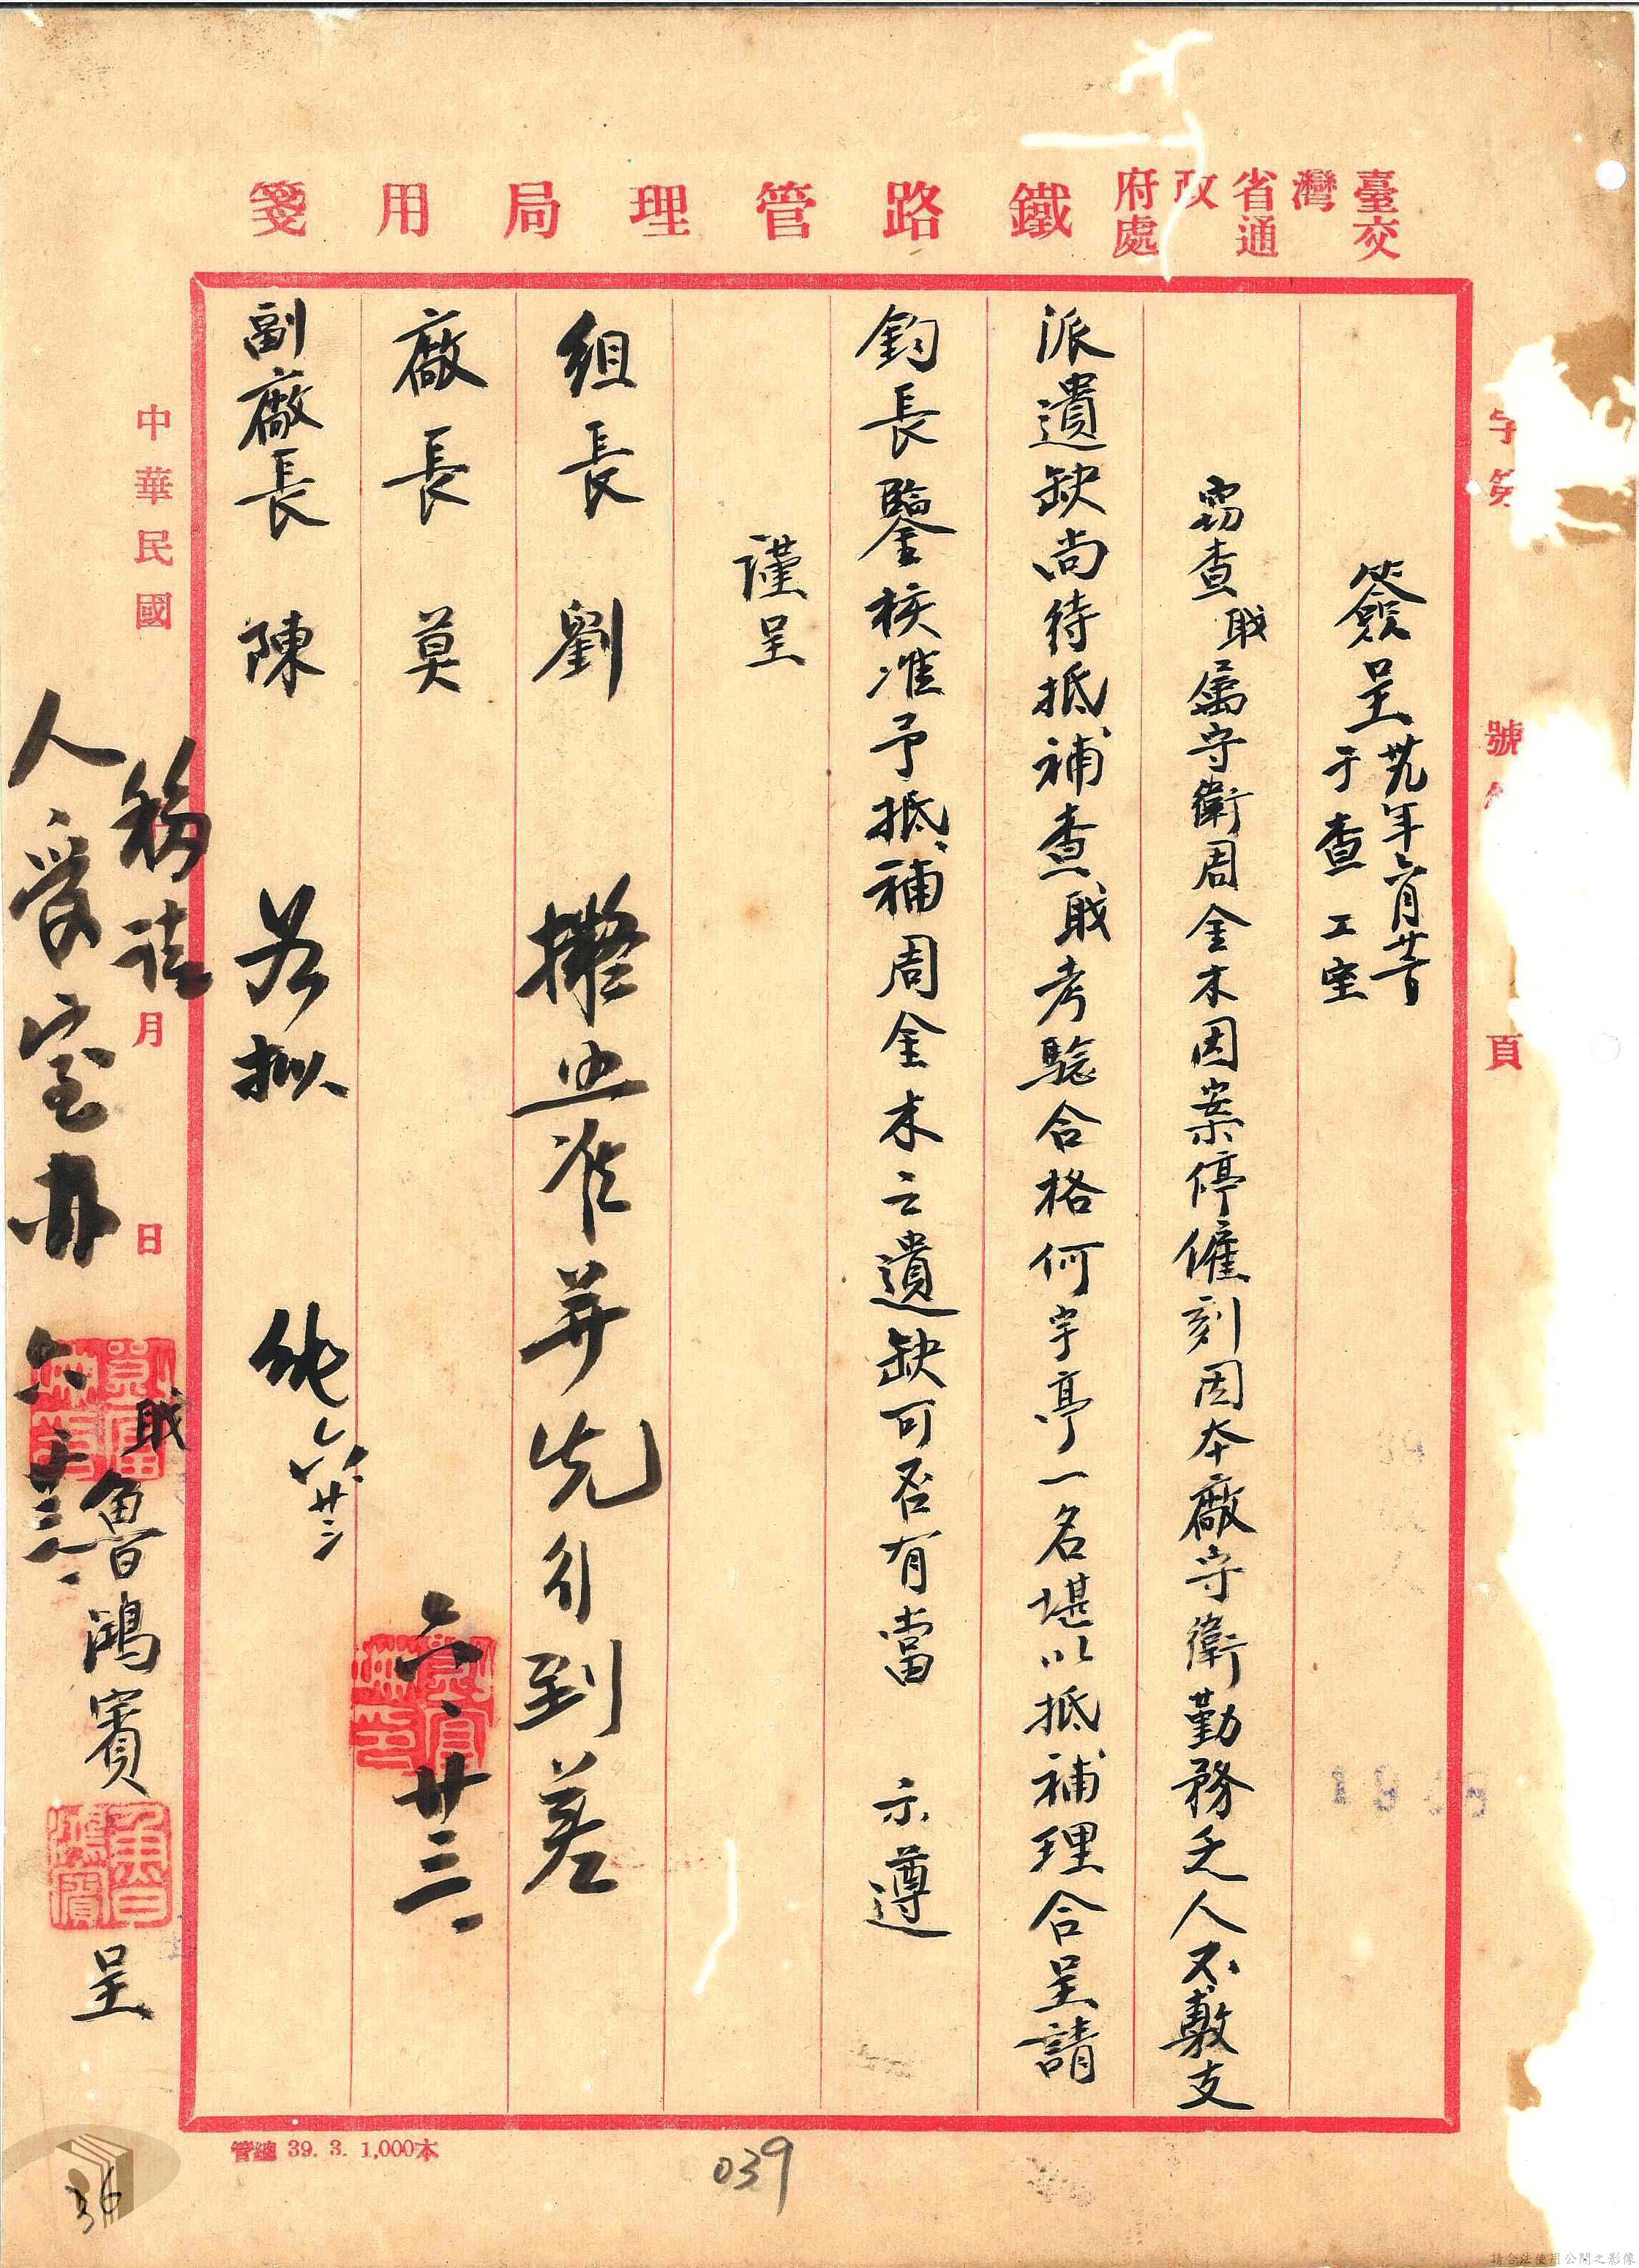 臺灣省政府交通處鐵路管理局用箋
字第
號
頁
簽呈
卅九年六月廿
于查工室
竊查職屬守衛周金木因案停僱刻因本廠守衛勤務乏人不敷支
派遺缺尚待抵補查職考驗合格何宇亭一名堪以抵補理合呈請
鈞長鑒核准予抵補周金木之遺缺可否有當 示遵
謹呈
組長 劉
廠長 莫
副廠長 陳
擬照准并先行到差
六、廿三、
如拟
純 六、廿三
移請
人事室办
六、廿三、
職魯鴻賓 呈
魯鴻賓
中華民國 月 日
管總 39. 3. 1,000本
039
36
請合法使用公開之影像